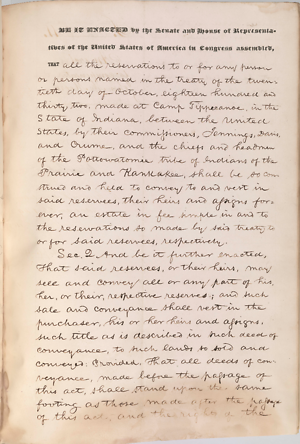 BE IT ENACTED by the Senate and House of Representa-
tives of the United States of America in Congress assembled,
THAT all the reservations to or for any person
or persons named in the treaty of the twen-
tieth day of October, eighteen hundred and
thirty two, made at Camp Tippecanoe, in the
State of Indiana, between the United
States, by their commissioners, Jennings, Davis
and Crume, and the chiefs and headmen
of the Pottowotomie tribe of Indians of the
Prairie and Kankakee, shall be so con
strued and held to convey to and vest in
said reservees, their heirs and assigns for-
ever, an estate in fee simple in and to
the reservations so made by said treaty to
or for said reservees, respectively.
Sec. 2. And be it further enacted,
That said reservees, or their heirs, may
sell and convey all or any part of his,
her, or their, respective reserves; and such
sale and conveyance shall vest in the
purchaser, his or her heirs and assigns,
such title as is described in such deed of
conveyance, to such lands so sold and
conveyed: Provided, That all deeds of con-
veyance, made before the passage of
this act, shall stand upon the same
footing as those made after the passage
of this act, and the